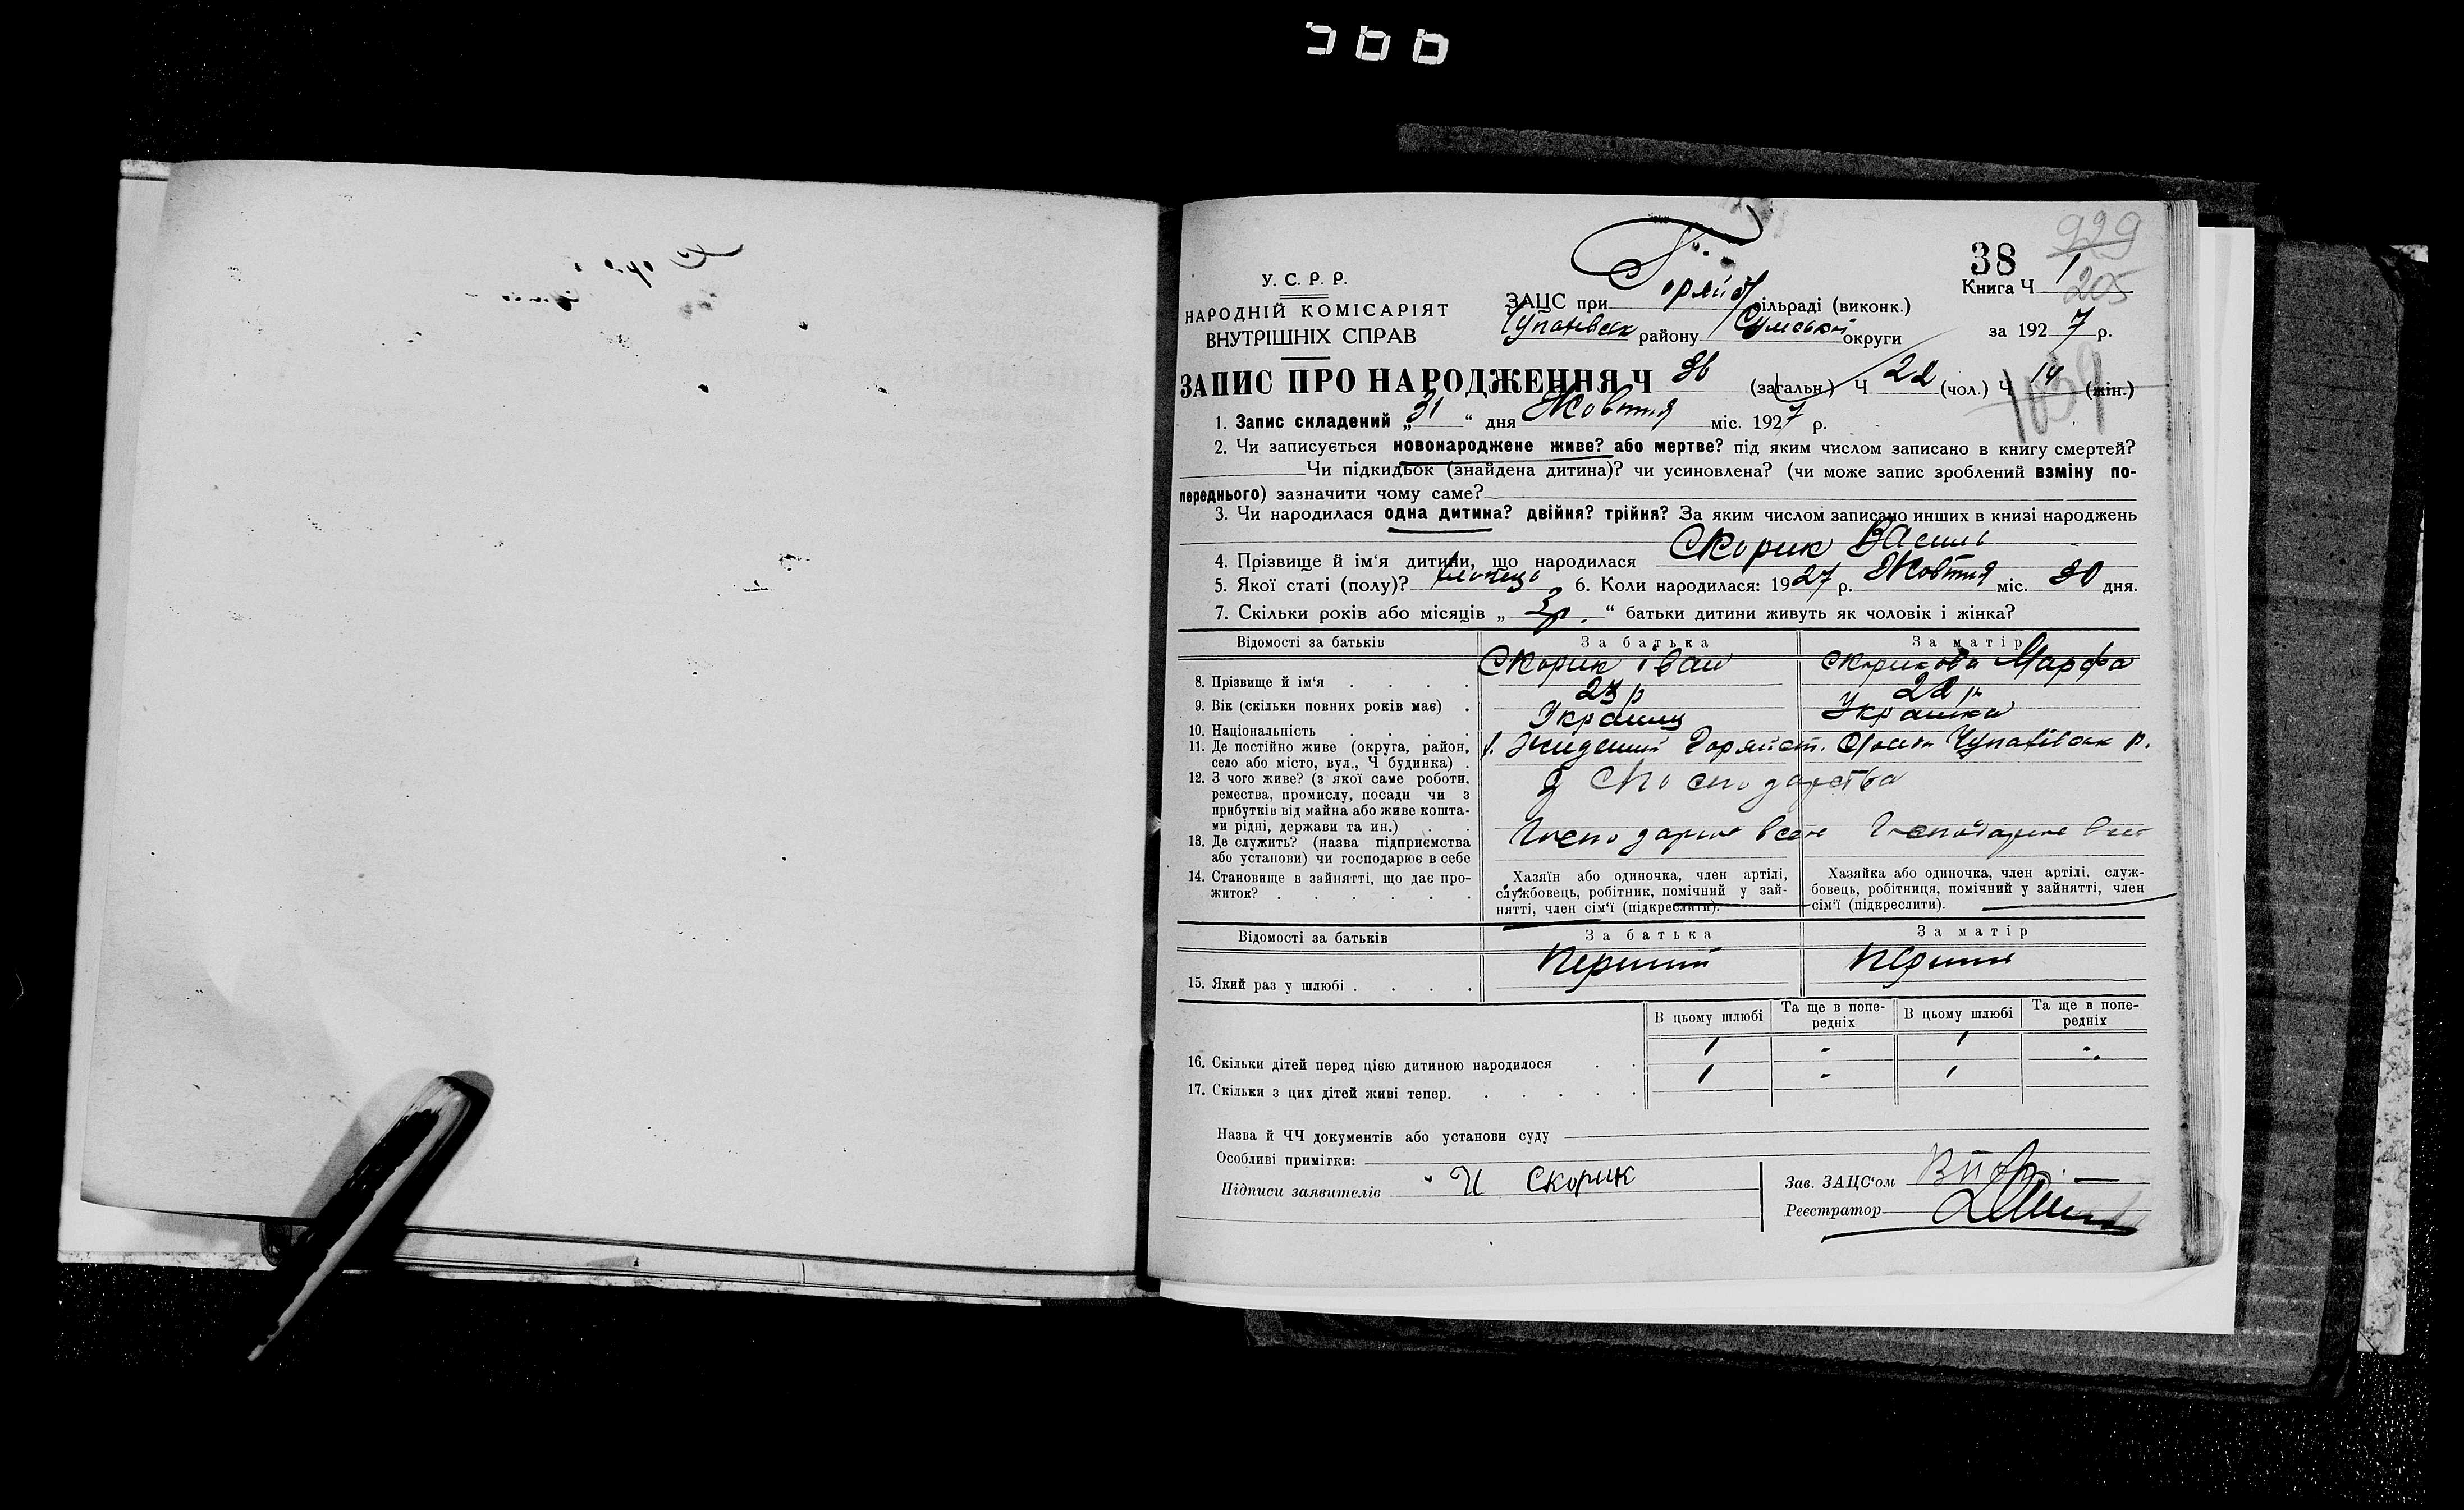 38
929
205
У. С. Р. Р.
НАРОДНІЙ КОМІСАРІЯТ
ВНУТРІШНІХ СПРАВ
ЗАЦС при сільраді (виконк.)
району Сумської округи
Книга Ч 1
за 1927 р.
ЗАПИС ПРО НАРОДЖЕННЯ Ч 36 (загальн.) Ч 22 (чол.) Ч 14 (жін.)
1039
1. Запис складений „31“ дня Жовтня міс. 1927 р.
2. Чи записується новонароджене живе? або мертве? під яким числом записано в книгу смертей?
Чи підкидьок (знайдена дитина)? чи усиновлена? (чи може запис зроблений взміну по-
переднього) зазначити чому саме?
3. Чи народилася одна дитина? двійня? трійня? За яким числом записано инших в книзі народжень
4. Прізвище й ім'я дитини, що народилася Скорик Василь
5. Якої статі (полу)? хлопець 6. Коли народилася: 1927 р. Жовтня міс. 30 дня.
7. Скільки років або місяців „3 р.“ батьки дитини живуть як чоловік і жінка?
Відомості за батьків За батька За матір
8. Прізвище й ім'я Скорик Іван Скорикова Марфа
9. Вік (скільки повних років має) 23 р 22 р
10. Національність Українц Українка
11. Де постійно живе (округа, район,
село або місто, вул., Ч будинка)
12. З чого живе? (з якої саме роботи,
ремества, промислу, посади чи з
прибутків від майна або живе кошта-
ми рідні, держави та ин.)
13. Де служить? (назва підприємства
або установи) чи господарює в себе
14. Становище в зайнятті, що дає про-
житок?
Хазяїн або одиночка, член артілі,
службовець, робітник, помічний у зай-
нятті, член сім'ї (підкреслити).
Хазяйка або одиночка, член артілі, служ-
бовець, робітниця, помічний у зайнятті, член
сім'ї (підкреслити).
Відомості за батьків За батька За матір
15. Який раз у шлюбі Перший Перший
В цьому шлюбі Та ще в попе-
редніх В цьому шлюбі Та ще в попе-
редніх
16. Скільки дітей перед цією дитиною народилося 1 - 1 -
17. Скільки з цих дітей живі тепер. 1 - 1
Назва й ЧЧ документів або установи суду
Особливі примітки:
Підписи заявителів И Скорик
Зав. ЗАЦС'ом
Реєстратор